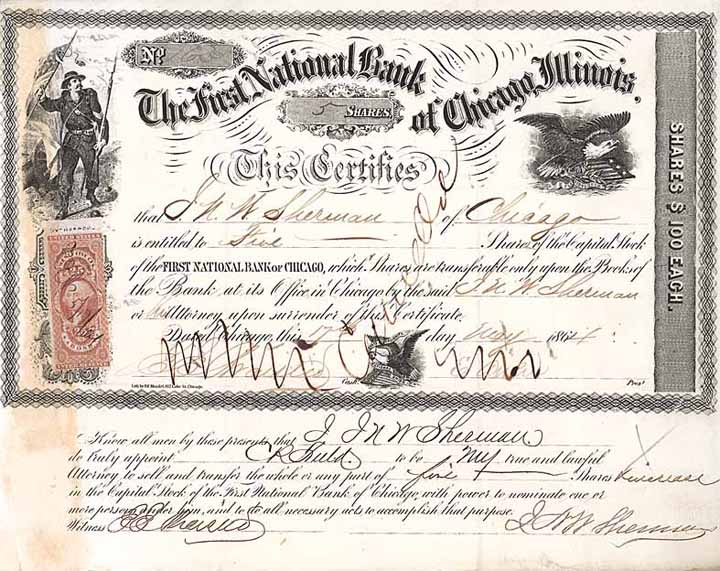 No.
The First National Bank
of Chicago, Illinois.
5 SHARES.
This Certifies
that J N W Sherman of Chicago
is entitled to Five Shares of the Capital Stock
of the FIRST NATIONAL BANK OF CHICAGO, which Shares are transferable only upon the Books of
the Bank, at its Office in Chicago by the said J N W Sherman
or Attorney upon surrender of this Certificate.
Dated Chicago, this 17 day May 1864
Cancelled
Cash. Prest
SHARES $100 EACH.
UNITED STATES
Know all men by these presents, that I J N W Sherman
do truly appoint to be my true and lawful
Attorney to sell and transfer the whole or any part of five Shares
in the Capital Stock of the First National Bank of Chicago, with power to nominate one or
more persons under him, and to do all necessary acts to accomplish that purpose.
Witness J N W Sherman